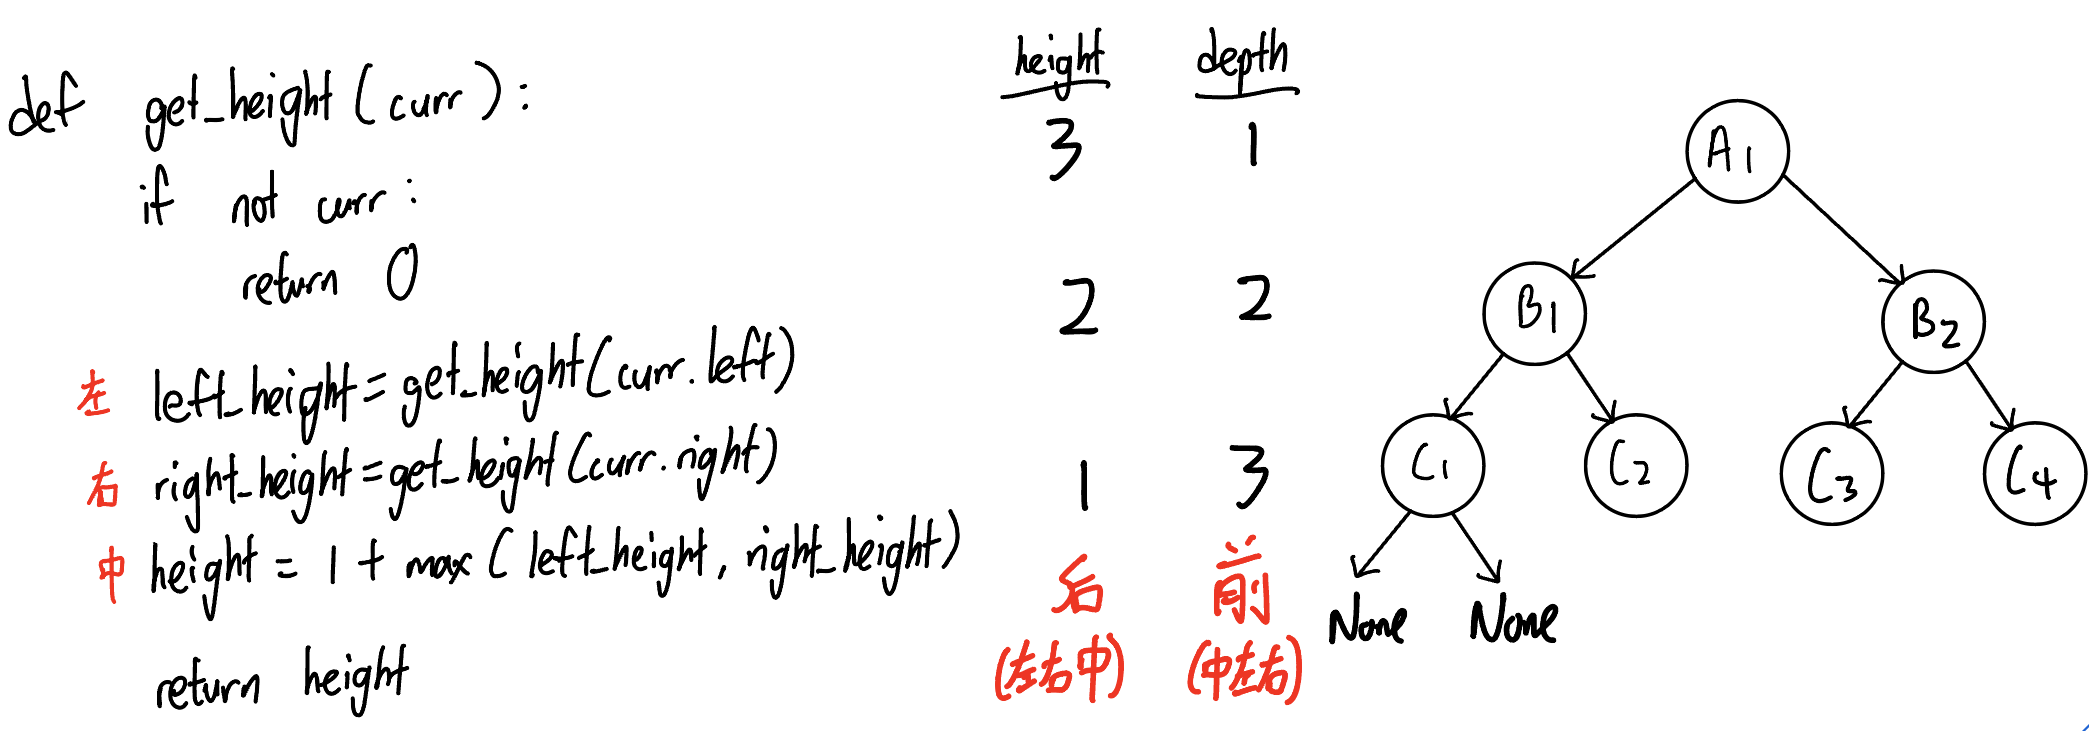 def get_height(curr):
if not curr:
return 0
左 left_height=get_height(curr.left)
右 right_height=get_height(curr.right)
中 height = 1 + max(left_height, right_height)
return height
height depth
3 1
2 2
1 3
后 前
(左右中) (中左右)
A1
B1 B2
C1 C2 C3 C4
None None